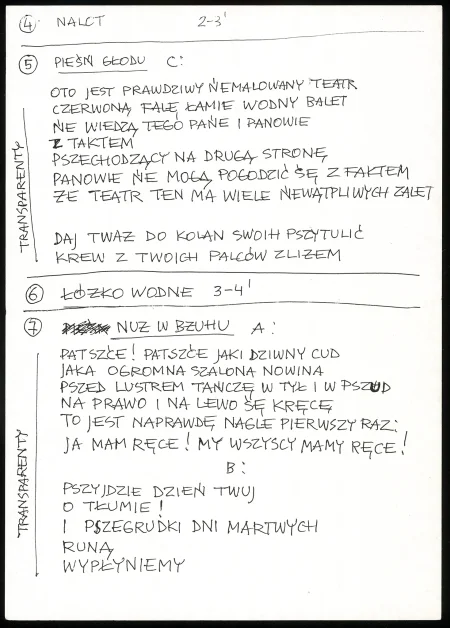 ④ NALOT 2-3'
⑤ PIEŚŃ GŁODU C:
OTO JEST PRAWDZIWY ŃEMALOWANY TEATR
CZERWONĄ FALĘ ŁAMIE WODNY BALET
ŃE WIEDZĄ TEGO PAŃE I PANOWIE
Z TAKTEM
PSZECHODZĄCY NA DRUGĄ STRONĘ
PANOWIE ŃE MOGĄ POGODZIĆ ŚĘ Z FAKTEM
ŻE TEATR TEN MA WIELE ŃEWĄTPLIWYCH ZALET
TRANSPARENTY
DAJ TWAŻ DO KOLAN SWOIH PSZYTULIĆ
KREW Z TWOICH PALCÓW ZLIZEM
⑥ ŁÓŻKO WODNE 3-4'
⑦ NUŻ W BŻUHU A:
PATSZĆE! PATSZĆE JAKI DZIWNY CUD
JAKA OGROMNA SZALONA NOWINA
PSZED LUSTREM TAŃCZĘ W TYŁ I W PSZUD
NA PRAWO I NA LEWO ŚĘ KRĘCĘ
TO JEST NAPRAWDĘ NAGLE PIERWSZY RAZ:
JA MAM RĘCE! MY WSZYSCY MAMY RĘCE!
B:
TRANSPARENTY
PSZYJDZIE DZIEŃ TWUJ
O TŁUMIE!
I PSZEGRUDKI DNI MARTWYCH
RUNĄ
WYPŁYNIEMY